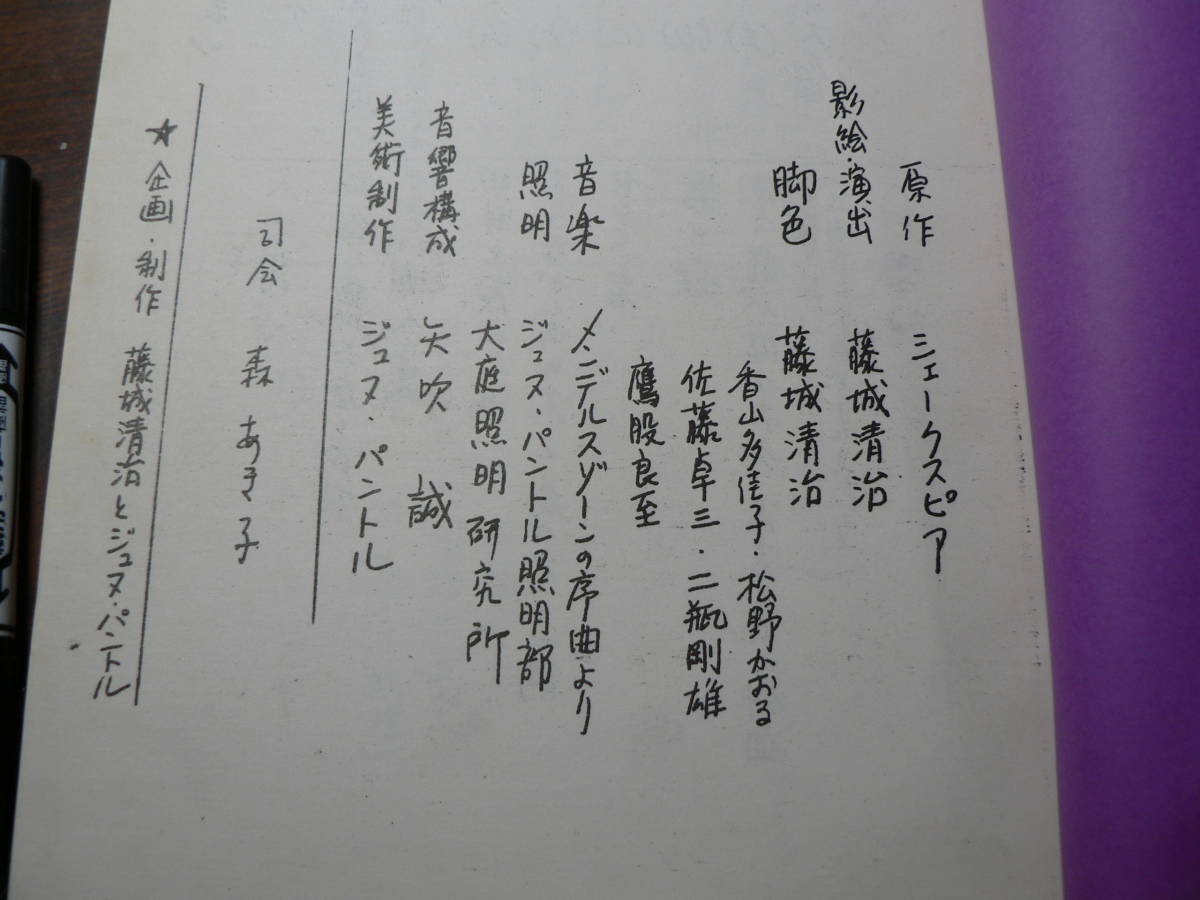 原作 シェークスピア
影絵・演出 藤城清治
脚色 藤城清治
香山多佳子・松野かおる
佐藤卓三・二瓶剛雄
鷹股良至
音楽 メンデルスゾーンの序曲より
照明 ジュヌ・パントル照明部
大庭照明研究所
音響構成 矢吹誠
美術制作 ジュヌ・パントル
司会 森あき子
★企画・制作 藤城清治とジュヌ・パントル